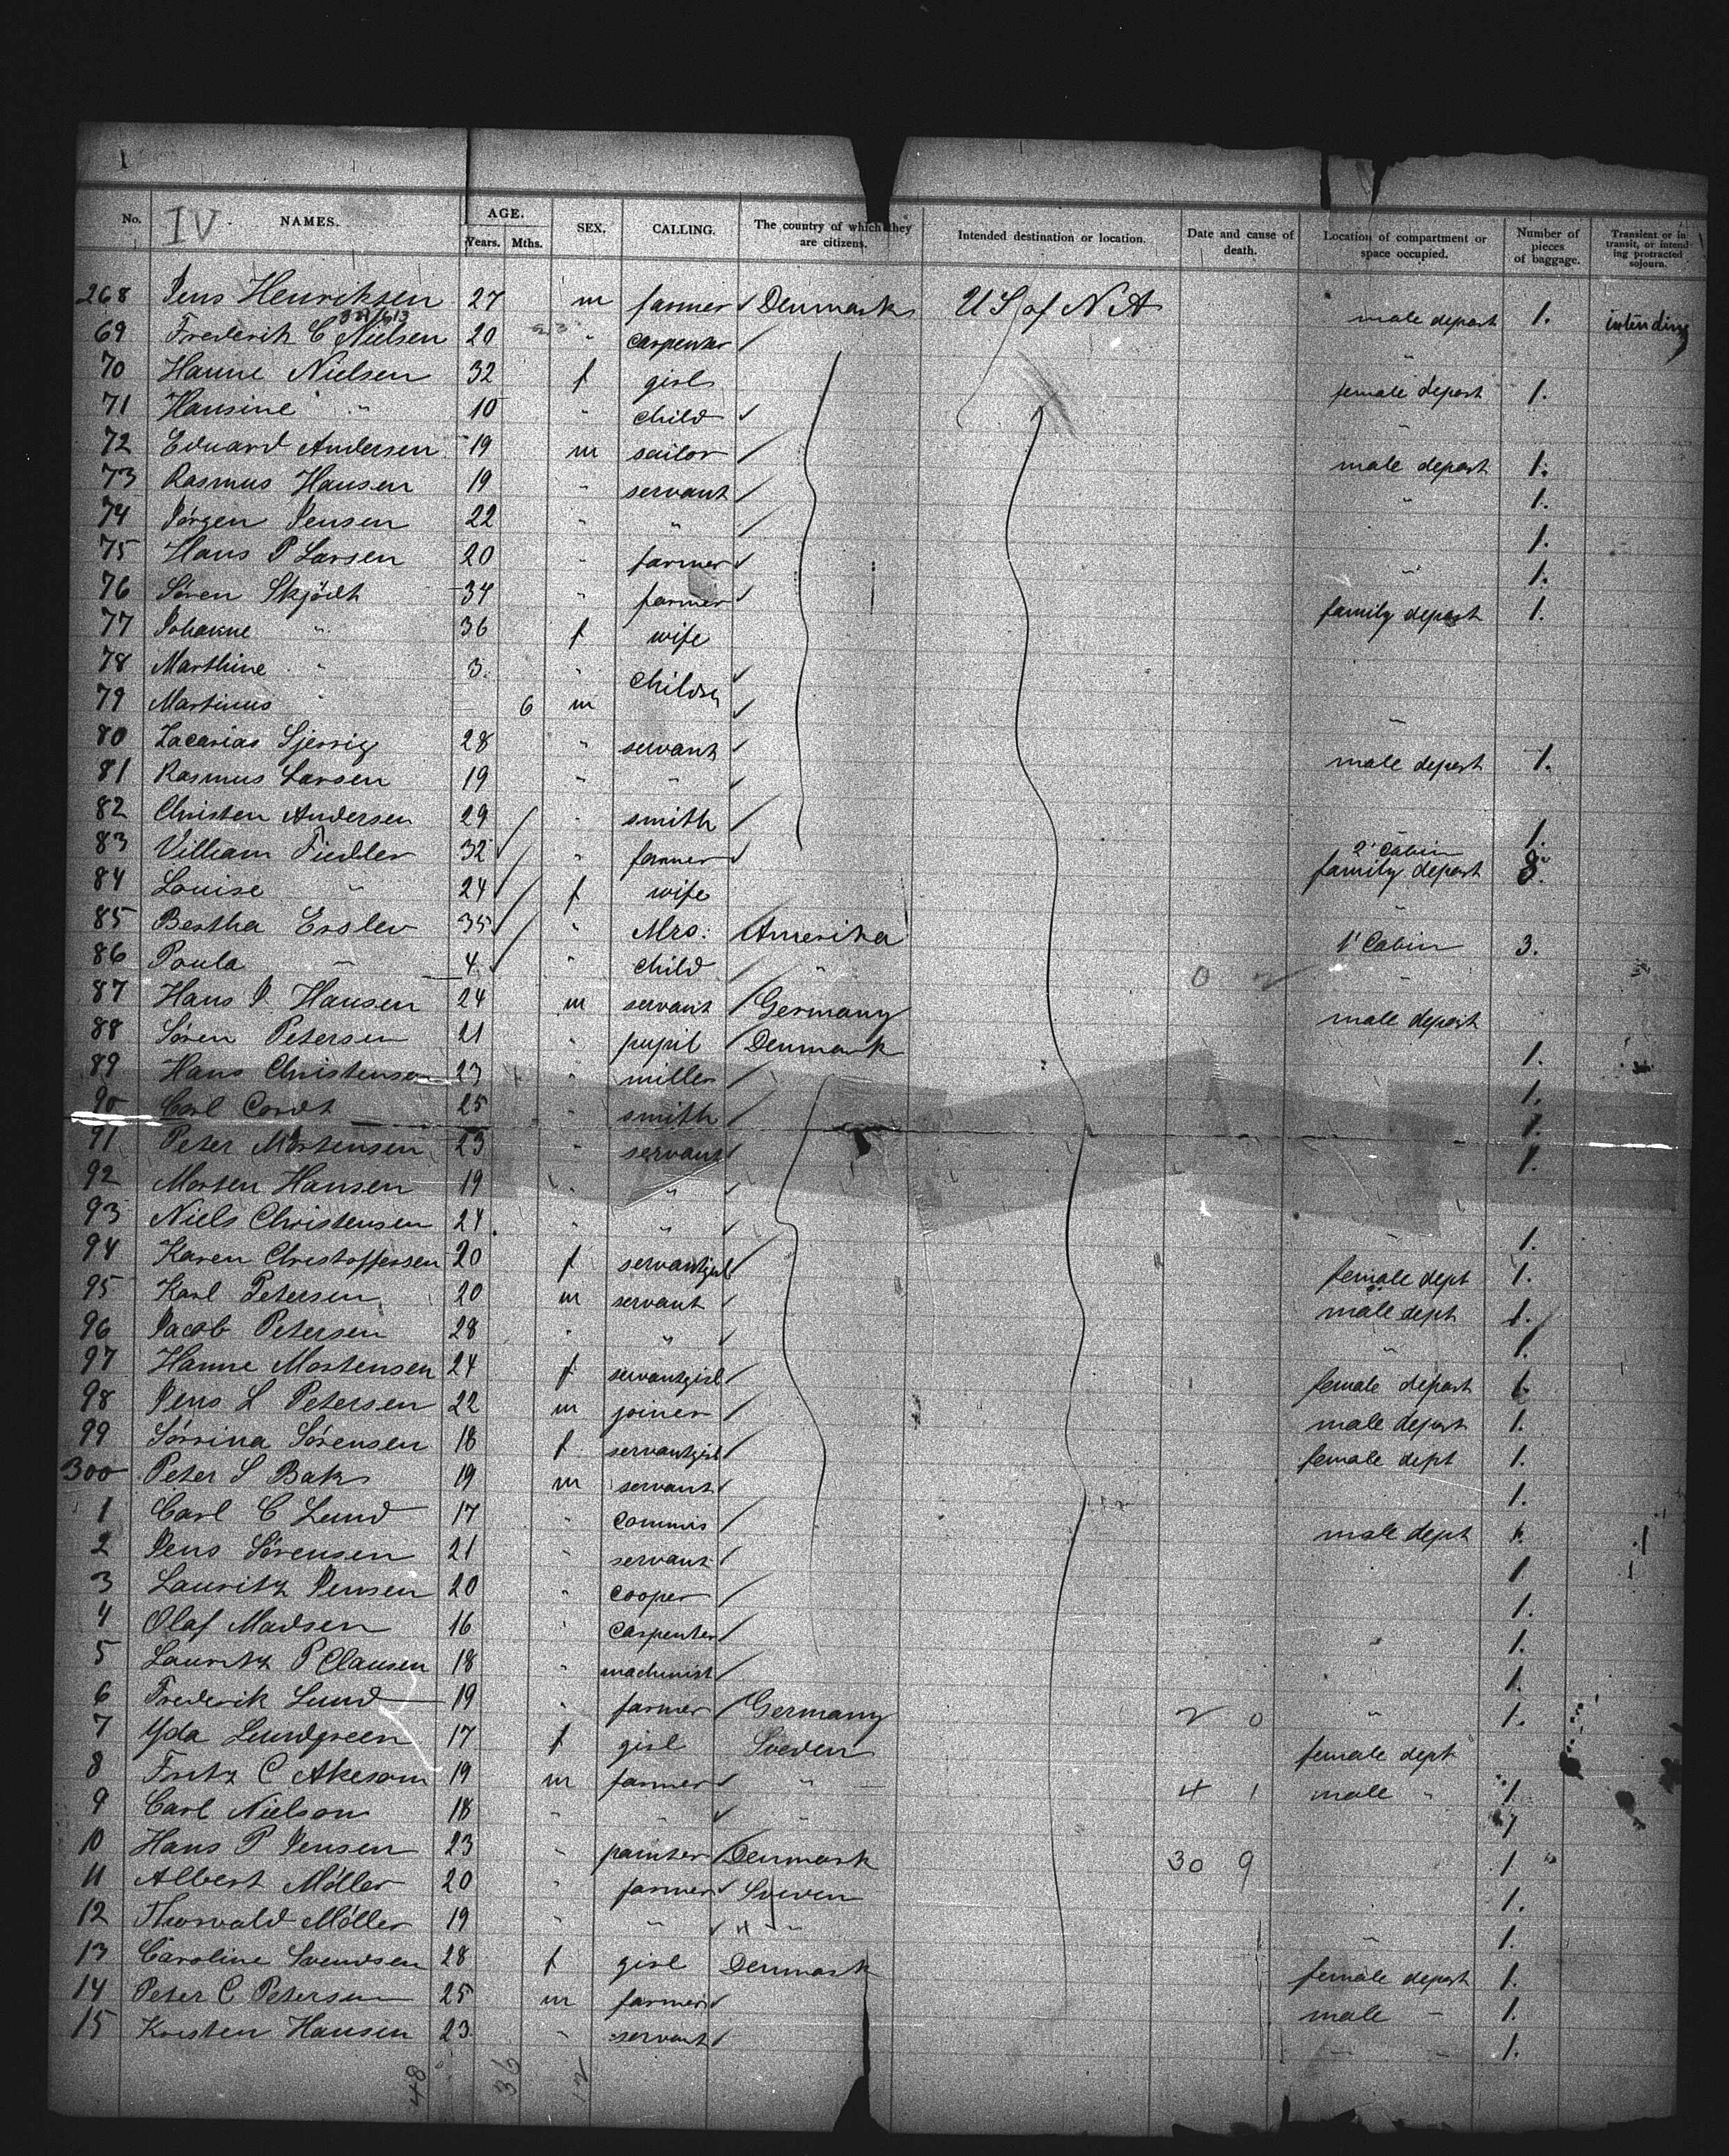 1
IV
No. NAMES. AGE. Years. Mths. SEX. CALLING. The country of which they are citizens. Intended destination or location. Date and cause of death. Location of compartment or space occupied. Number of pieces of baggage. Transient or in transit, or intending protracted sojourn.
268 Jens Henriksen 27 m farmer Denmark U S of N A male depart 1. intending
69 Frederik C Nielsen 20 " carpenter "
70 Hanne Nielsen 32 f girl female depart 1.
71 Hansine " 10 " child "
72 Eduard Andersen 19 m sailor male depart 1.
73 Rasmus Hansen 19 " servant " 1.
74 Jörgen Jensen 22 " " 1.
75 Hans P Larsen 20 " farmer " 1.
76 Sören Skjödt 34 " farmer family depart 1.
77 Johanne " 36 f wife
78 Marthine " 3 " children
79 Martinus 6 m "
80 Zacarias Sjerrig 28 " servant male depart 1.
81 Rasmus Larsen 19 " "
82 Christen Andersen 29 " smith 1.
83 Villiam Fiedler 32 " farmer 2' Cabin family depart 8.
84 Louise " 24 f wife "
85 Bertha Erslev 35 " Mrs: Amerika 1' Cabin 3.
86 Poula " 4 " child " 0 2 "
87 Hans J Hansen 24 m servant Germany male depart
88 Sören Petersen 21 " pupil Denmark 1.
89 Hans Christensen 23 " miller 1.
90 Carl Cordt 25 " smith 1.
91 Peter Mortensen 23 " servant 1.
92 Morten Hansen 19 " "
93 Niels Christensen 24 " " " 1.
94 Karen Christoffersen 20 f servantgirl female dept 1.
95 Karl Petersen 20 m servant male dept 1.
96 Jacob Petersen 28 " " " 1.
97 Hanne Mortensen 24 f servantgirl female depart 1.
98 Jens L Petersen 22 m joiner male depart 1.
99 Sörrina Sörensen 18 f servantgirl female dept 1.
300 Peter S Bak 19 m servant 1.
1 Carl C Lund 17 " commis male dept 1.
2 Jens Sörensen 21 " servant 1
3 Lauritz Jensen 20 " cooper 1.
4 Olaf Madsen 16 " carpenter " 1.
5 Lauritz P Clausen 18 " machinist 1.
6 Frederik Lund 19 " farmer Germany 2 0 " 1.
7 Yda Lundgreen 17 f girl Sveden female dept
8 Fritz C Akeson 19 m farmer " 4 1 male " 1
9 Carl Nielson 18 " " " 1
10 Hans P Jensen 23 painter Denmark 30 9 1
11 Albert Möller 20 " farmer Sveden 1.
12 Thorvald Möller 19 " " " " 1.
13 Caroline Svendsen 28 f girl Denmark female depart 1.
14 Peter C Petersen 25 m farmer male " 1.
15 Kristen Hansen 23 " servant " " 1.
48 36 12